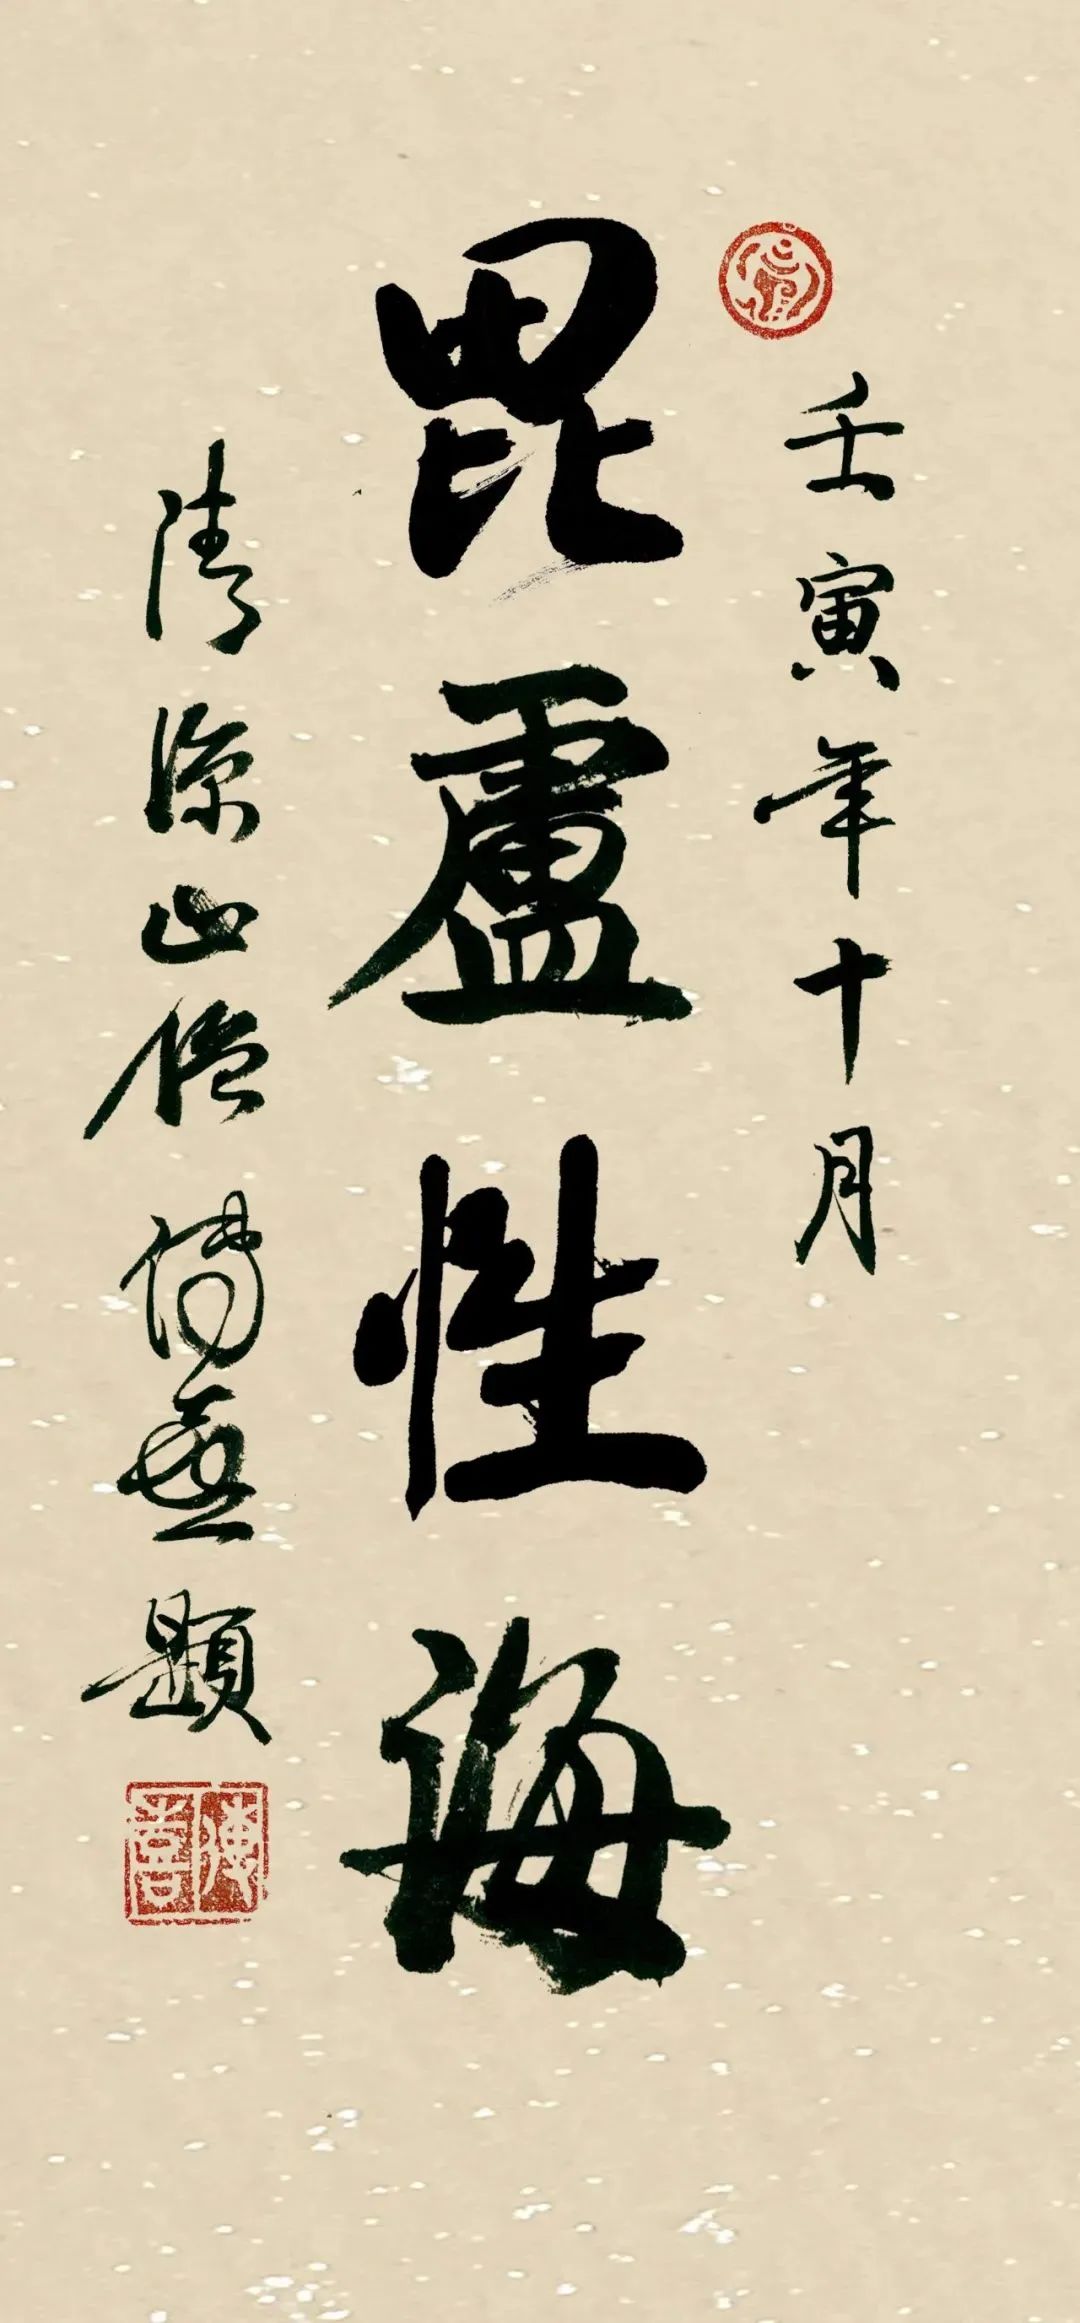 壬寅年十月
毘盧性海
清涼山僧傳喜題
傳喜